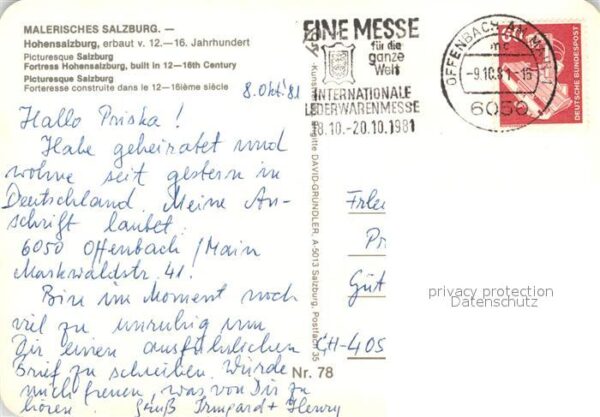 MALERISCHES SALZBURG. —
Hohensalzburg, erbaut v. 12.—16. Jahrhundert
Picturesque Salzburg
Fortress Hohensalzburg, built in 12—16th Century
Picturesque Salzburg
Forteresse construite dans le 12—16ième siècle
8. Okt. 81
Hallo Priska!
Habe geheiratet und
wohne seit gestern in
Deutschland. Meine An-
schrift lautet
6050 Offenbach/Main
Markwaldstr. 41.
Bin im Moment noch
viel zu unruhig um
Dir einen ausführlichen
Brief zu schreiben. Würde
mich freuen, was von Dir zu
hören. Gruß Irmgard + Henry
EINE MESSE
für die
ganze
Welt
INTERNATIONALE
LEDERWARENMESSE
18.10.-20.10.1981
OFFENBACH AM MAIN
-9.10.81-16
6050
DEUTSCHE BUNDESPOST
DAVID-GRUNDLER, A-5013 Salzburg, Postfach 35
Nr. 78
CH-405
privacy protection
Datenschutz